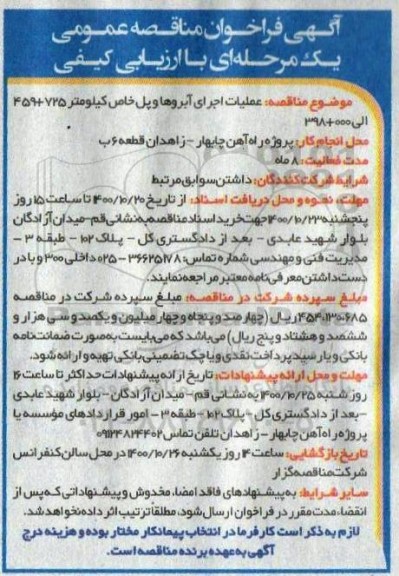 آگهی فراخوان مناقصه عمومی
یک مرحله‌ای با ارزیابی کیفی
موضوع مناقصه: عملیات اجرای آبروها و پل خاص کیلومتر ۷۲۵+۴۵۹
الی ۰۰۰+۳۹۸
محل انجام کار: پروژه راه آهن چابهار - زاهدان قطعه ۶ ب
مدت فعالیت: ۸ ماه
شرایط شرکت کنندگان: داشتن سوابق مرتبط
مهلت، نحوه و محل دریافت اسناد: از تاریخ ۱۴۰۰/۱۰/۲۰ تا ساعت ۱۵ روز
پنجشنبه ۱۴۰۰/۱۰/۲۳ جهت خرید اسناد مناقصه به نشانی قم-میدان آزادگان
بلوار شهید عابدی - بعد از دادگستری کل - پلاک ۱۰۲ - طبقه ۳ -
مدیریت فنی و مهندسی شماره تماس: ۳۶۶۲۵۱۷۸-۰۲۵ داخلی ۳۰۰ و با در
دست داشتن معرفی نامه معتبر مراجعه نمایند.
مبلغ سپرده شرکت در مناقصه: مبلغ سپرده شرکت در مناقصه
۴۵۴،۱۳۰،۶۸۵ ریال (چهارصد و پنجاه و چهار میلیون و یکصد و سی هزار و
ششصد و هشتاد و پنج ریال) می باشد که می بایست به صورت ضمانت نامه
بانکی و یا رسید پرداخت نقدی و یا چک تضمینی بانکی تهیه و ارائه شود.
مهلت و محل ارائه پیشنهادات: تاریخ ارائه پیشنهادات حداکثر تا ساعت ۱۶
روز شنبه ۱۴۰۰/۱۰/۲۵ به نشانی قم - میدان آزادگان - بلوار شهید عابدی
- بعد از دادگستری کل - پلاک ۱۰۲ - طبقه ۳ - امور قراردادهای مؤسسه یا
پروژه راه آهن چابهار - زاهدان تلفن تماس ۰۹۱۲۴۸۲۴۴۰۲
تاریخ بازگشایی: ساعت ۱۴ روز یکشنبه ۱۴۰۰/۱۰/۲۶ در محل سالن کنفرانس
شرکت مناقصه گزار
سایر شرایط: به پیشنهادهای فاقد امضا، مخدوش و پیشنهاداتی که پس از
انقضاء مدت مقرر در فراخوان ارسال شود، مطلقاً ترتیب اثر داده نخواهد شد.
لازم به ذکر است کارفرما در انتخاب پیمانکار مختار بوده و هزینه درج
آگهی به عهده برنده مناقصه است.